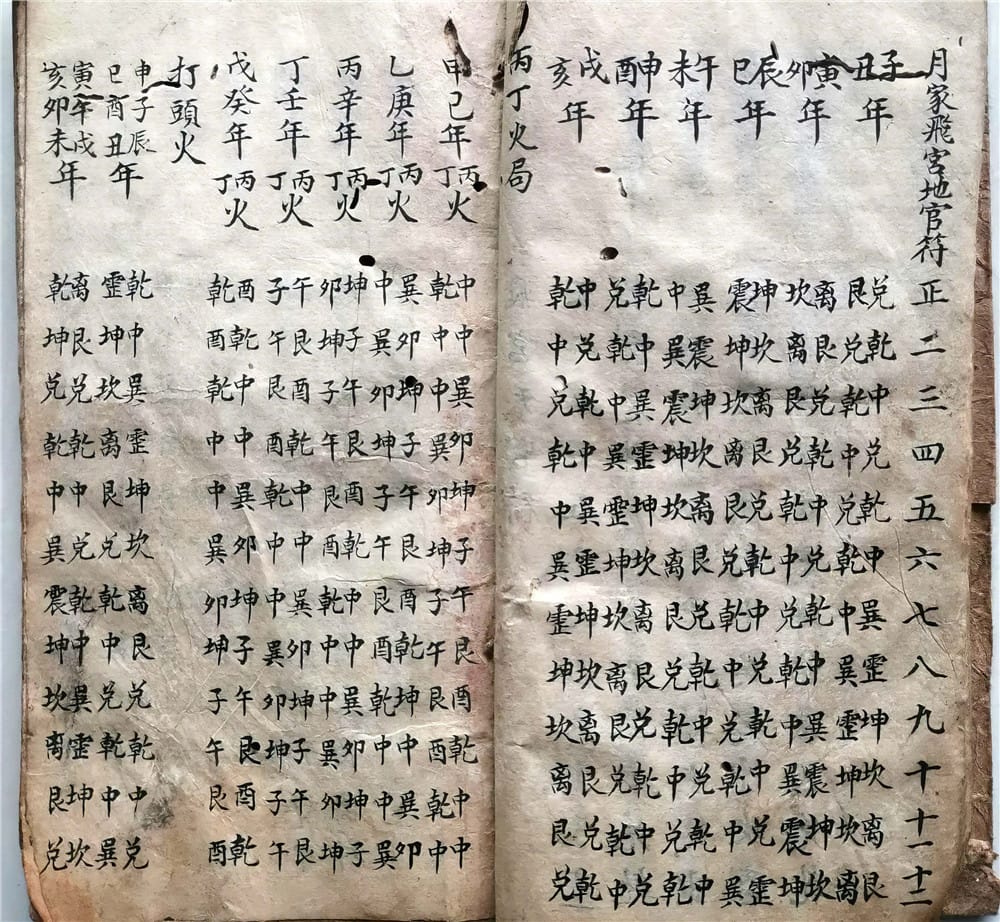 月家飛宮地官符 正 二 三 四 五 六 七 八 九 十 十一 十二
子丑年 兑艮 乾兑 中乾 兑中 乾兑 中乾 巽中 霊巽 坤霊 坎坤 离坎 艮离
寅卯年 离坎 艮离 兑艮 乾兑 中乾 兑中 乾兑 中乾 巽中 震巽 坤震 坎坤
辰巳年 坤震 坎坤 离坎 艮离 兑艮 乾兑 中乾 兑中 乾兑 中乾 兑中 霊巽
午未年 巽中 震巽 坤震 坎坤 离坎 艮离 兑艮 乾兑 中乾 兑中 乾兑 中乾
申酉年 乾兑 中乾 巽中 霊巽 坤霊 坎坤 离坎 艮离 兑艮 乾兑 中乾 兑中
戌亥年 中乾 兑中 乾兑 中乾 巽中 霊巽 坤霊 坎坤 离坎 艮离 兑艮 乾兑
丙丁火局
甲己年丙丁火 中乾 中中 巽中 卯巽 坤卯 子坤 午子 艮午 酉艮 乾酉 中乾 中中
乙庚年丙丁火 巽中 卯巽 坤卯 子坤 午子 艮午 酉艮 乾酉 坤乾 中中 巽中 卯巽
丙辛年丙丁火 坤卯 子坤 午子 艮午 酉艮 乾酉 中乾 中中 巽中 卯巽 坤卯 子坤
丁壬年丙丁火 午子 艮午 酉艮 乾酉 中乾 中中 巽中 卯巽 坤卯 子坤 午子 艮午
戊癸年丙丁火 酉乾 乾酉 中乾 中中 巽中 卯巽 坤卯 子坤 午子 艮午 酉艮 乾酉
打頭火
申子辰巳酉丑年 乾霊 中坤 巽坎 霊离 坤艮 坎兑 离乾 艮中 兑兑 乾乾 中中 兑巽
寅午戌亥卯未年 离乾 艮坤 兑兑 乾乾 中中 兑巽 乾震 中坤 巽坎 霊离 坤艮 坎兑